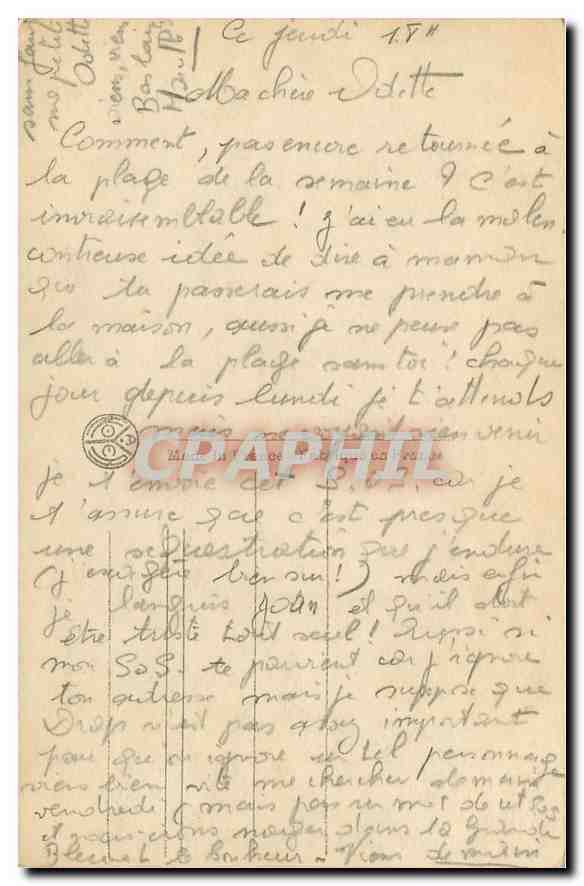 Ce jeudi 15H
Ma chère Odette
Comment, pas encore retournée à
la plage de la semaine ? C'est
invraisemblable ! J'ai eu la malen
contreuse idée de dire à maman
que tu passerais me prendre à
la maison, aussi je ne peux pas
aller à la plage sans toi ! chaque
jour depuis lundi je t'attends
mais ne voyant rien venir
Made in France Fabriqué en France
CPAPHIL
je t'envoie cet S.O.S. car je
t'assure que c'est presque
une sequestration que j'endure
(j'exagère bien sur !) mais enfin
je languis et qu'il doit
être triste tout seul ! Aussi si
mon S.O.S. te parvient car j'ignore
ton adresse mais je suppose que
n'est pas assez important
pour que on ignore un tel personnage
viens bien vite me chercher demain
vendredi mais pas un mot de cet SOS
et nous irons nager dans la Grande
Bleue le bonheur - Viens demain
sans faute
ma petite
Odette
viens, viens